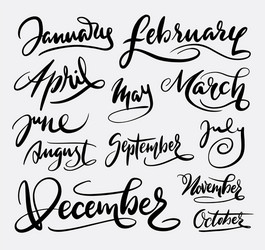 January February
April May March
June July
August September
December November
October